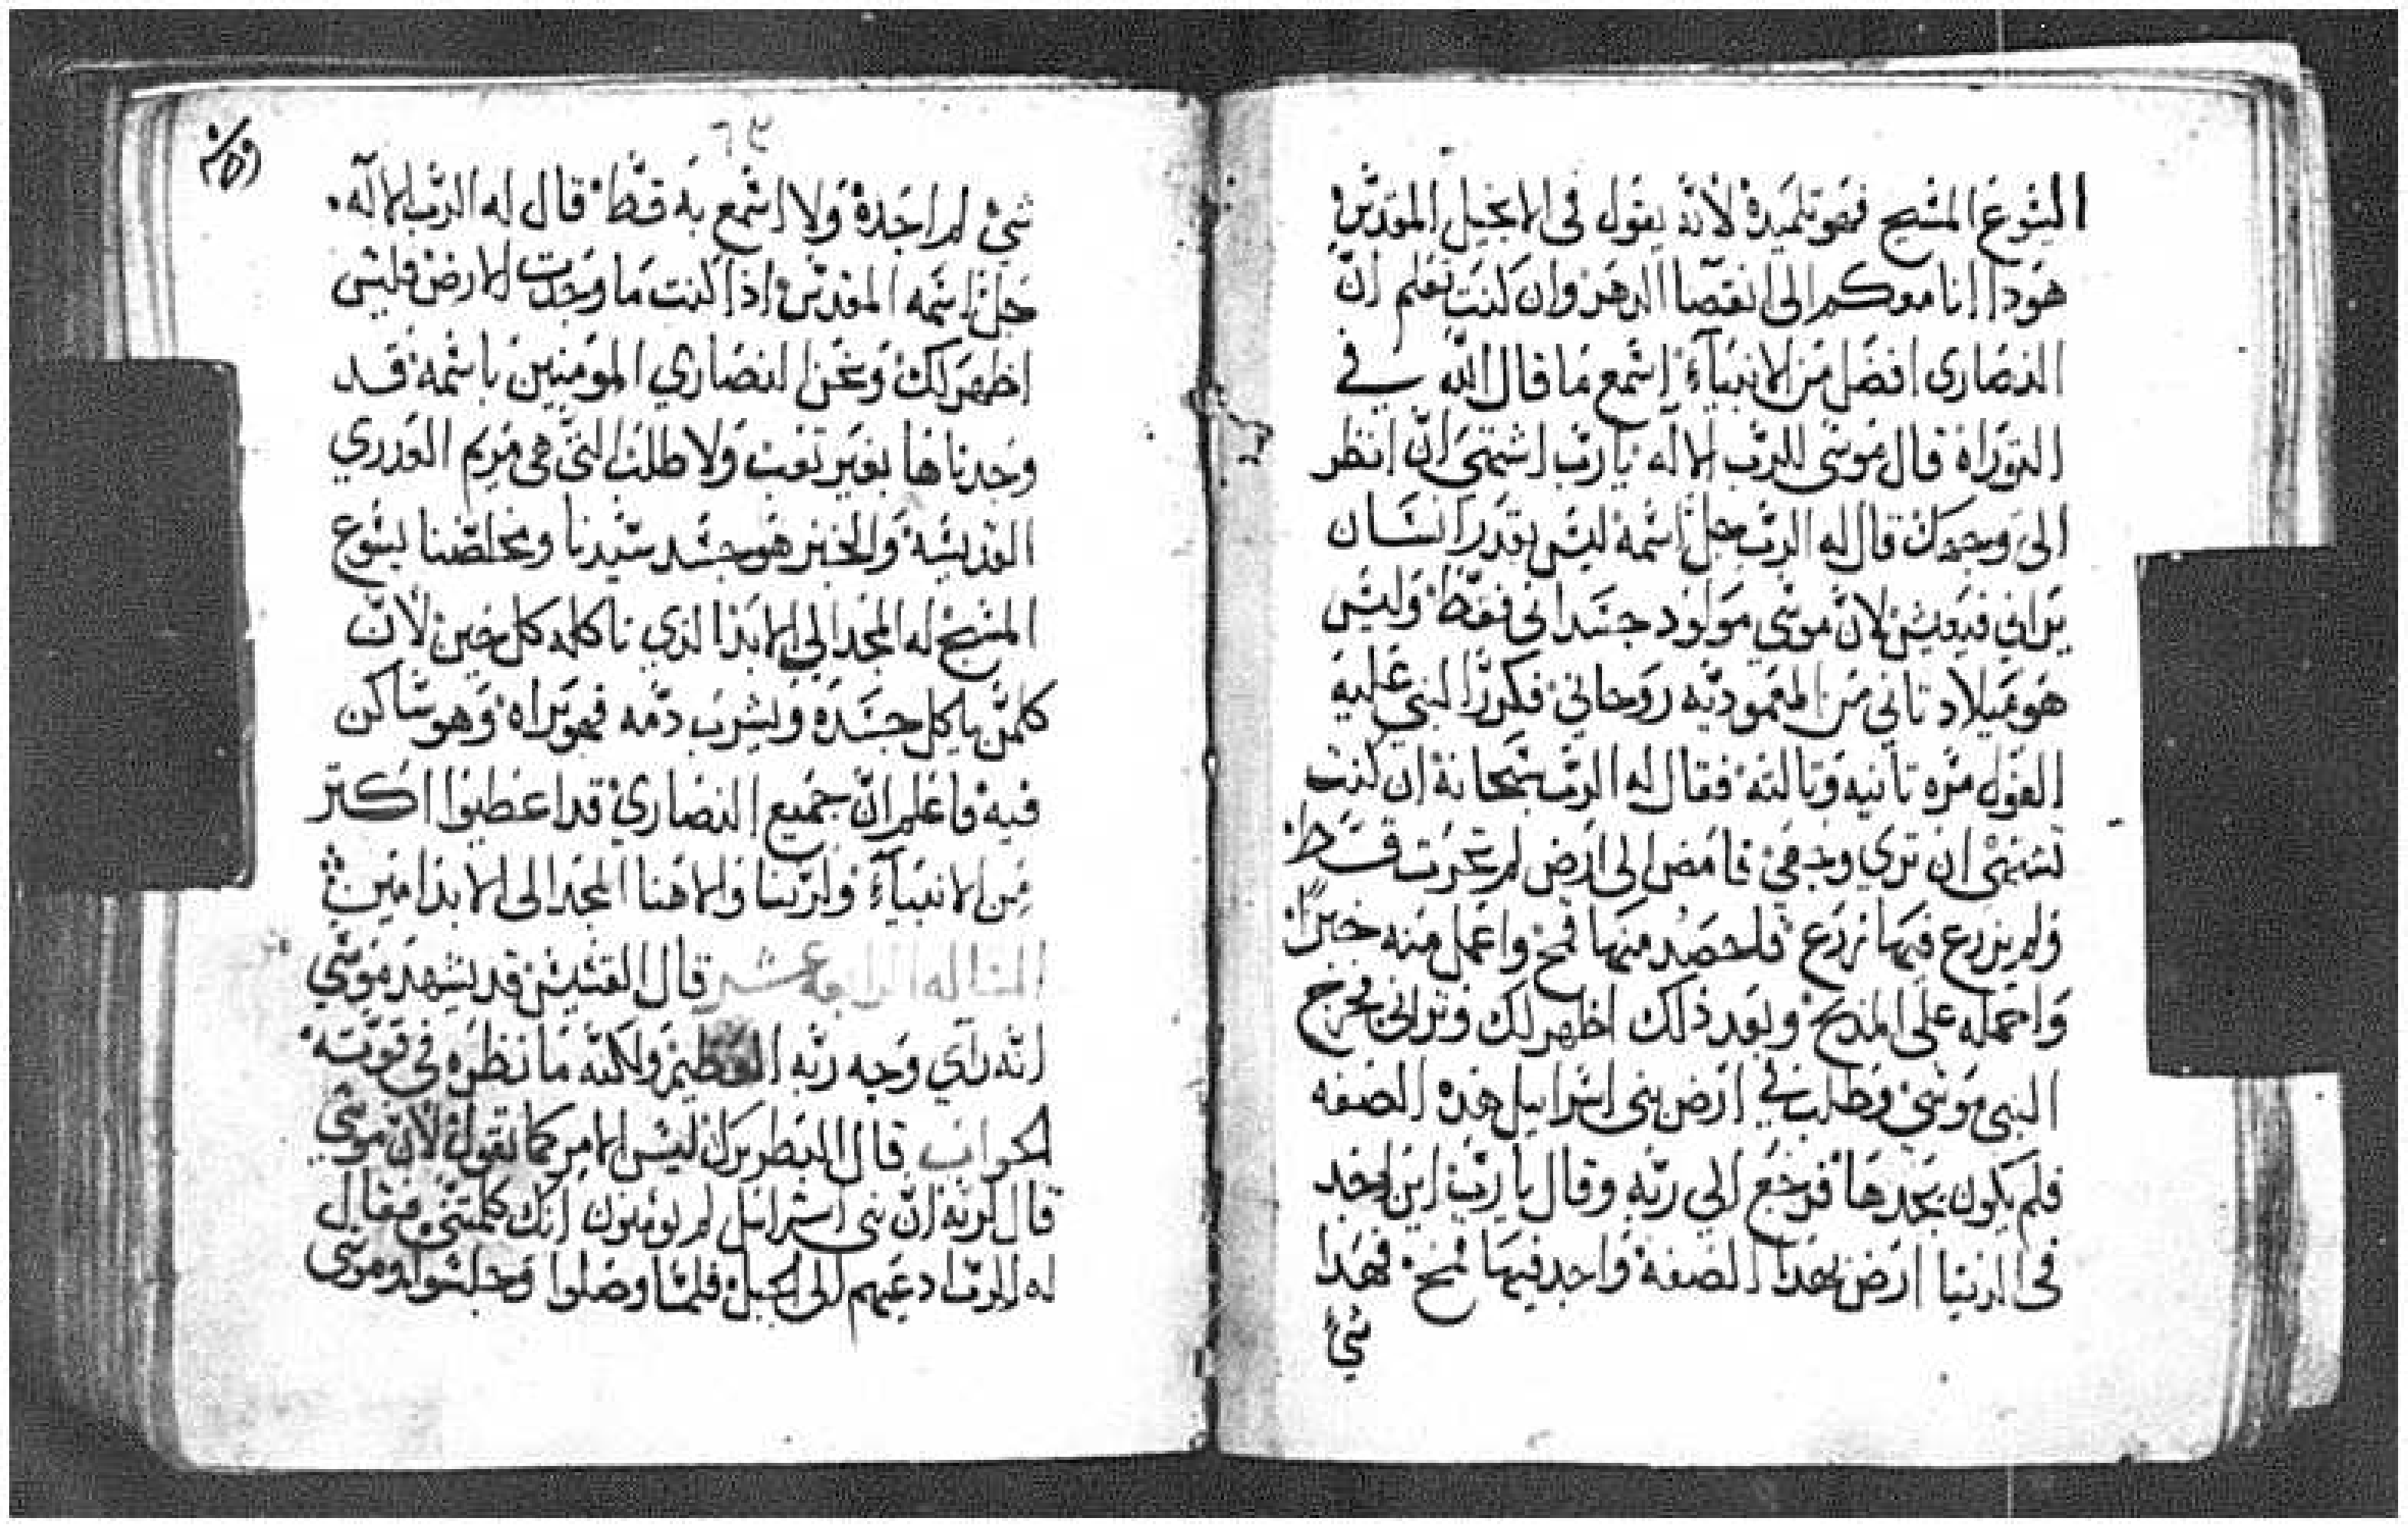 اليسوع المسيح فهو تلميذه لانه يقول فى الانجيل المقدس
هودا انا معكم الى انقضا الدهر وان كنت تعلم ان
النصارى افضل من الانبيآء اسمع ما قال الله في
التوراه قال موسى للرب الاله يارب اشتهى ان انظر
الى وجهك قال له الرب جل اسمه ليس يقدر انسان
يراني فيعيش لان موسى مولود جسدانى فقط وليس
هو ميلاد تاني من المعموديه روحاني فكرر النبي عليه
القول مره تانيه وتالته فقال له الرب سبحانه ان كنت
تشتهى ان تري وجهي فامض الى ارض لم تحرت قط
ولم يزرع فيها زرع فلحصد منها قمح واعمل منه خبزا
واحمله على المذبح وبعد ذلك اظهر لك وتراني فخرج
النبى موسى وطلب في ارض بنى اسراييل هده الصفه
فلم يكون يجدها فرجع الي ربه وقال يا رب اين اوجد
فى الدنيا ارض بهدا الصفه واجد فيها قمح فهدا
شي
٦٣
شي لم اجده ولا اسمع به قط قال له الرب الاله
جل اسمه المقدس اذا كنت ما وجدت الارض فليس
اظهر لك ونحن النصاري المومنين باسمه قد
وجدناها بغير تعب ولا طلب التي هي مريم العدري
القديسه والخبز هو جسد سيدنا ومخلصنا يسوع
المسيح له المجد الي الابد الذي ناكله كل حين لان
كلمن ياكل جسده ويشرب دمه فهو يراه وهو ساكن
فيه فاعلم ان جميع النصاري قد اعطيوا اكتر
من الانبيآء ولربنا والاهنا المجد الى الابد امين
المساله الرابعه عشر قال القسيس قد يشهد موسي
انه راي وجه ربه العظيم ولاكنه ما نظره في قوته
الجواب قال البطريرك ليس الامر كما تقول لان موسي
قال لربه ان بني اسراييل لم يومنون انك كلمتني فقال
له الرب ادعيهم الى الجبل فلما وصلوا وجلسوا وموسي